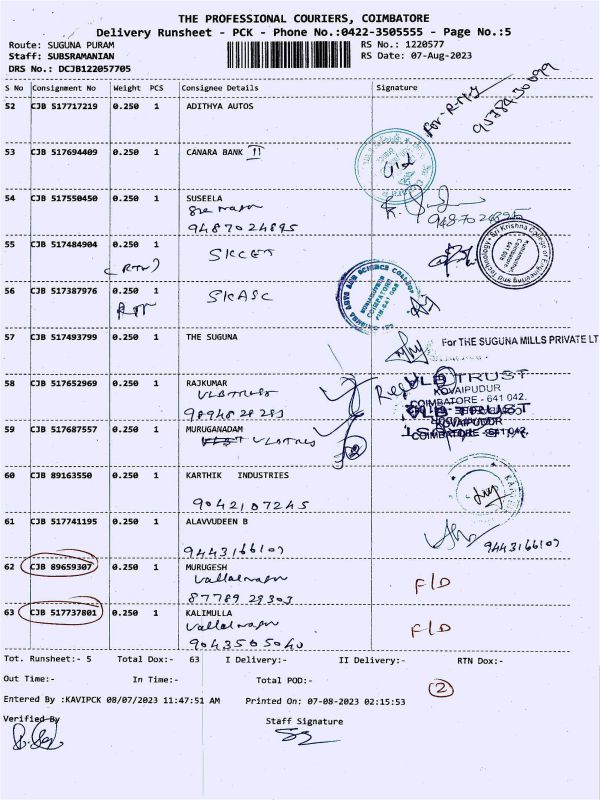 THE PROFESSIONAL COURIERS, COIMBATORE
Delivery Runsheet - PCK - Phone No.:0422-3505555 - Page No.:5
Route: SUGUNA PURAM RS No.: 1220577
Staff: SUBSRAMANIAN RS Date: 07-Aug-2023
DRS No.: DCJB122057705
S No Consignment No Weight PCS Consignee Details Signature
52 CJB 517717219 0.250 1 ADITHYA AUTOS
53 CJB 517694409 0.250 1 CANARA BANK II
54 CJB 517550450 0.250 1 SUSEELA
9487024895
9487024895
55 CJB 517484904 0.250 1 SKCET
(RTN)
Sri Krishna College of Engineering and Technology
56 CJB 517387976 0.250 1 SKASC
RTN
ARTS AND SCIENCE COLLEGE
COIMBATORE
57 CJB 517493799 0.250 1 THE SUGUNA
For THE SUGUNA MILLS PRIVATE LT
58 CJB 517652969 0.250 1 RAJKUMAR
VLB TRUST
KOVAIPUDUR
COIMBATORE - 641 042.
59 CJB 517687557 0.250 1 MURUGANADAM
VLB TRUST
KOVAIPUDUR
COIMBATORE - 641 042.
60 CJB 89163550 0.250 1 KARTHIK INDUSTRIES
9042107245
61 CJB 517741195 0.250 1 ALAVVUDEEN B
9443166107
9443166107
62 CJB 89659307 0.250 1 MURUGESH
Vallalnagar
8778929303
F/D
63 CJB 517737801 0.250 1 KALIMULLA
Vallalnagar
9043505040
F/D
Tot. Runsheet:- 5 Total Dox:- 63 I Delivery:- II Delivery:- RTN Dox:-
Out Time:- In Time:- Total POD:- 2
Entered By :KAVIPCK 08/07/2023 11:47:51 AM Printed On: 07-08-2023 02:15:53
Verified By Staff Signature